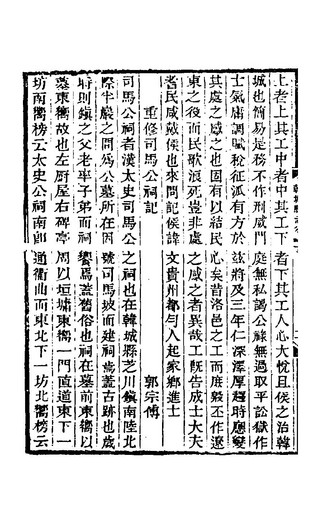 上者上其工中者中其工下者下其工人心大悅且侯之治韓
城也簡易是務不作刑威門庭無私謁公祿無過取平訟獄作
士氣庸調賦稅征派有方於茲將及三年仁深澤厚趕時應變
其處之咸之也固有以結民心矣昔洛邑之工而庶毀不作遼
東之役而民歌浪死豈非處之咸之者異哉工旣告成士大夫
耆民咸戴侯也來問記侯諱文貴州都勻人起家鄉進士
重修司馬公祠記 郭宗傅
司馬公祠者漢太史司馬公之祠也在韓城縣芝川鎮南陸北
際半巖之間爲公墓所在因號司馬坡而建祠焉蓋古跡也歲
時則鎮之父老率子弟而祠饗焉蓋舊俗也祠在墓前東嚮以
墓東嚮故也左厨屋右碑亭周以垣墉東嚮一門直道東下一
坊南嚮榜云太史公祠南卽通衢曲而東北下一坊北嚮榜云